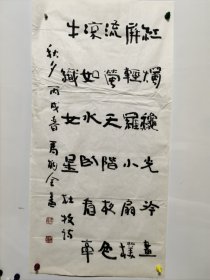 紅燭穐光冷畫
屏輕羅小扇撲
流螢天階夜色
涼如水臥看牽
牛織女星 杜牧詩
秋夕 丙戌春萬金書